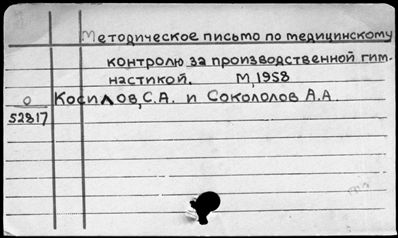 Методическое письмо по медицинскому
контролю за производственной гим-
настикой. М, 1958
О Косилов, С.А. и Сокололов А.А.
52817